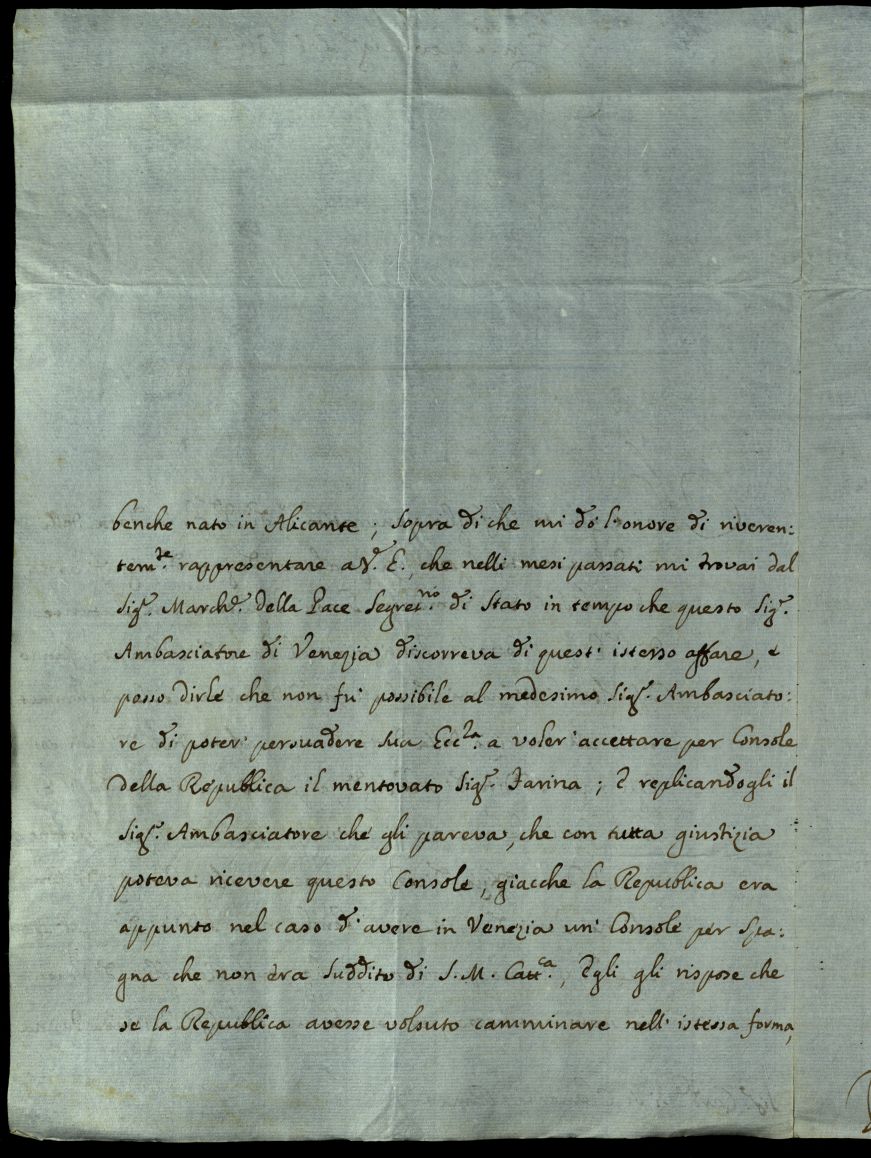 benche nato in Alicante; sopra di che mi dò l'onore di riveren:
tem.te rappresentare a V.E. che nelli mesi passati mi trovai dal
Sig.r March.e della Pace Segret.rio di Stato in tempo che questo Sig.r
Ambasciatore di Venezia discorreva di quest' istesso affare, e
posso dirle che non fu' possibile al medesimo Sig.r Ambasciato:
re di poter' persuadere sua Ecc.za a voler' accettare per Console
della Republica il mentovato Sig.r Farina; E replicandogli il
Sig.r Ambasciatore che gli pareva, che con tutta giustizia
poteva ricevere questo Console, giacche la Republica era
appunto nel caso d' avere in Venezia un' Console per Spa:
gna che non era suddito di S.M. Catt.ca, Egli gli rispose che
se la Republica avesse volsuto camminare nell' istessa forma,